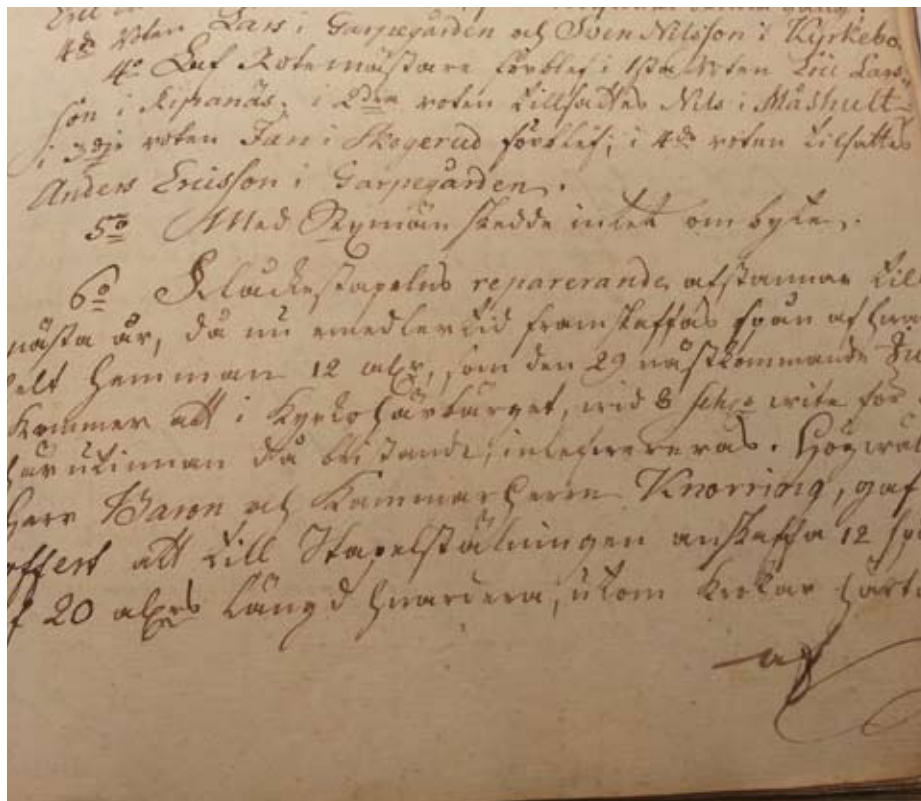 4de Roten Lars i Garpegården och Sven Nilsson i Kyrkebo.
4o Taf Rotemästare förblef i 1sta Roten Eric Lars-
son i Ripanäs. i 2dra roten tillsattes Nils i Måshult
i 3dje roten Jan i Skogerud förblef; i 4de roten tilsattes
Anders Ericsson i Garpegården.
5o Med Rymän skedde intet ombyte.
6o Klåckestapelns reparerande afstannar til
nästa år, då nu emedlertid framskaffas spån af hwa
helt Hemman 12 alnr, som den 29 nästkommande
Kommer att i Kyrkohärbärget, wid 8 wite för
härutinnan då bristande, inlefvereras. Högwäl
Herr Baron och Kammarherre Knorring, gaf
offert att till Stapelstälningen anskaffa 12
f 20 alnrs Längd hwardera, utom Krokar härt
af